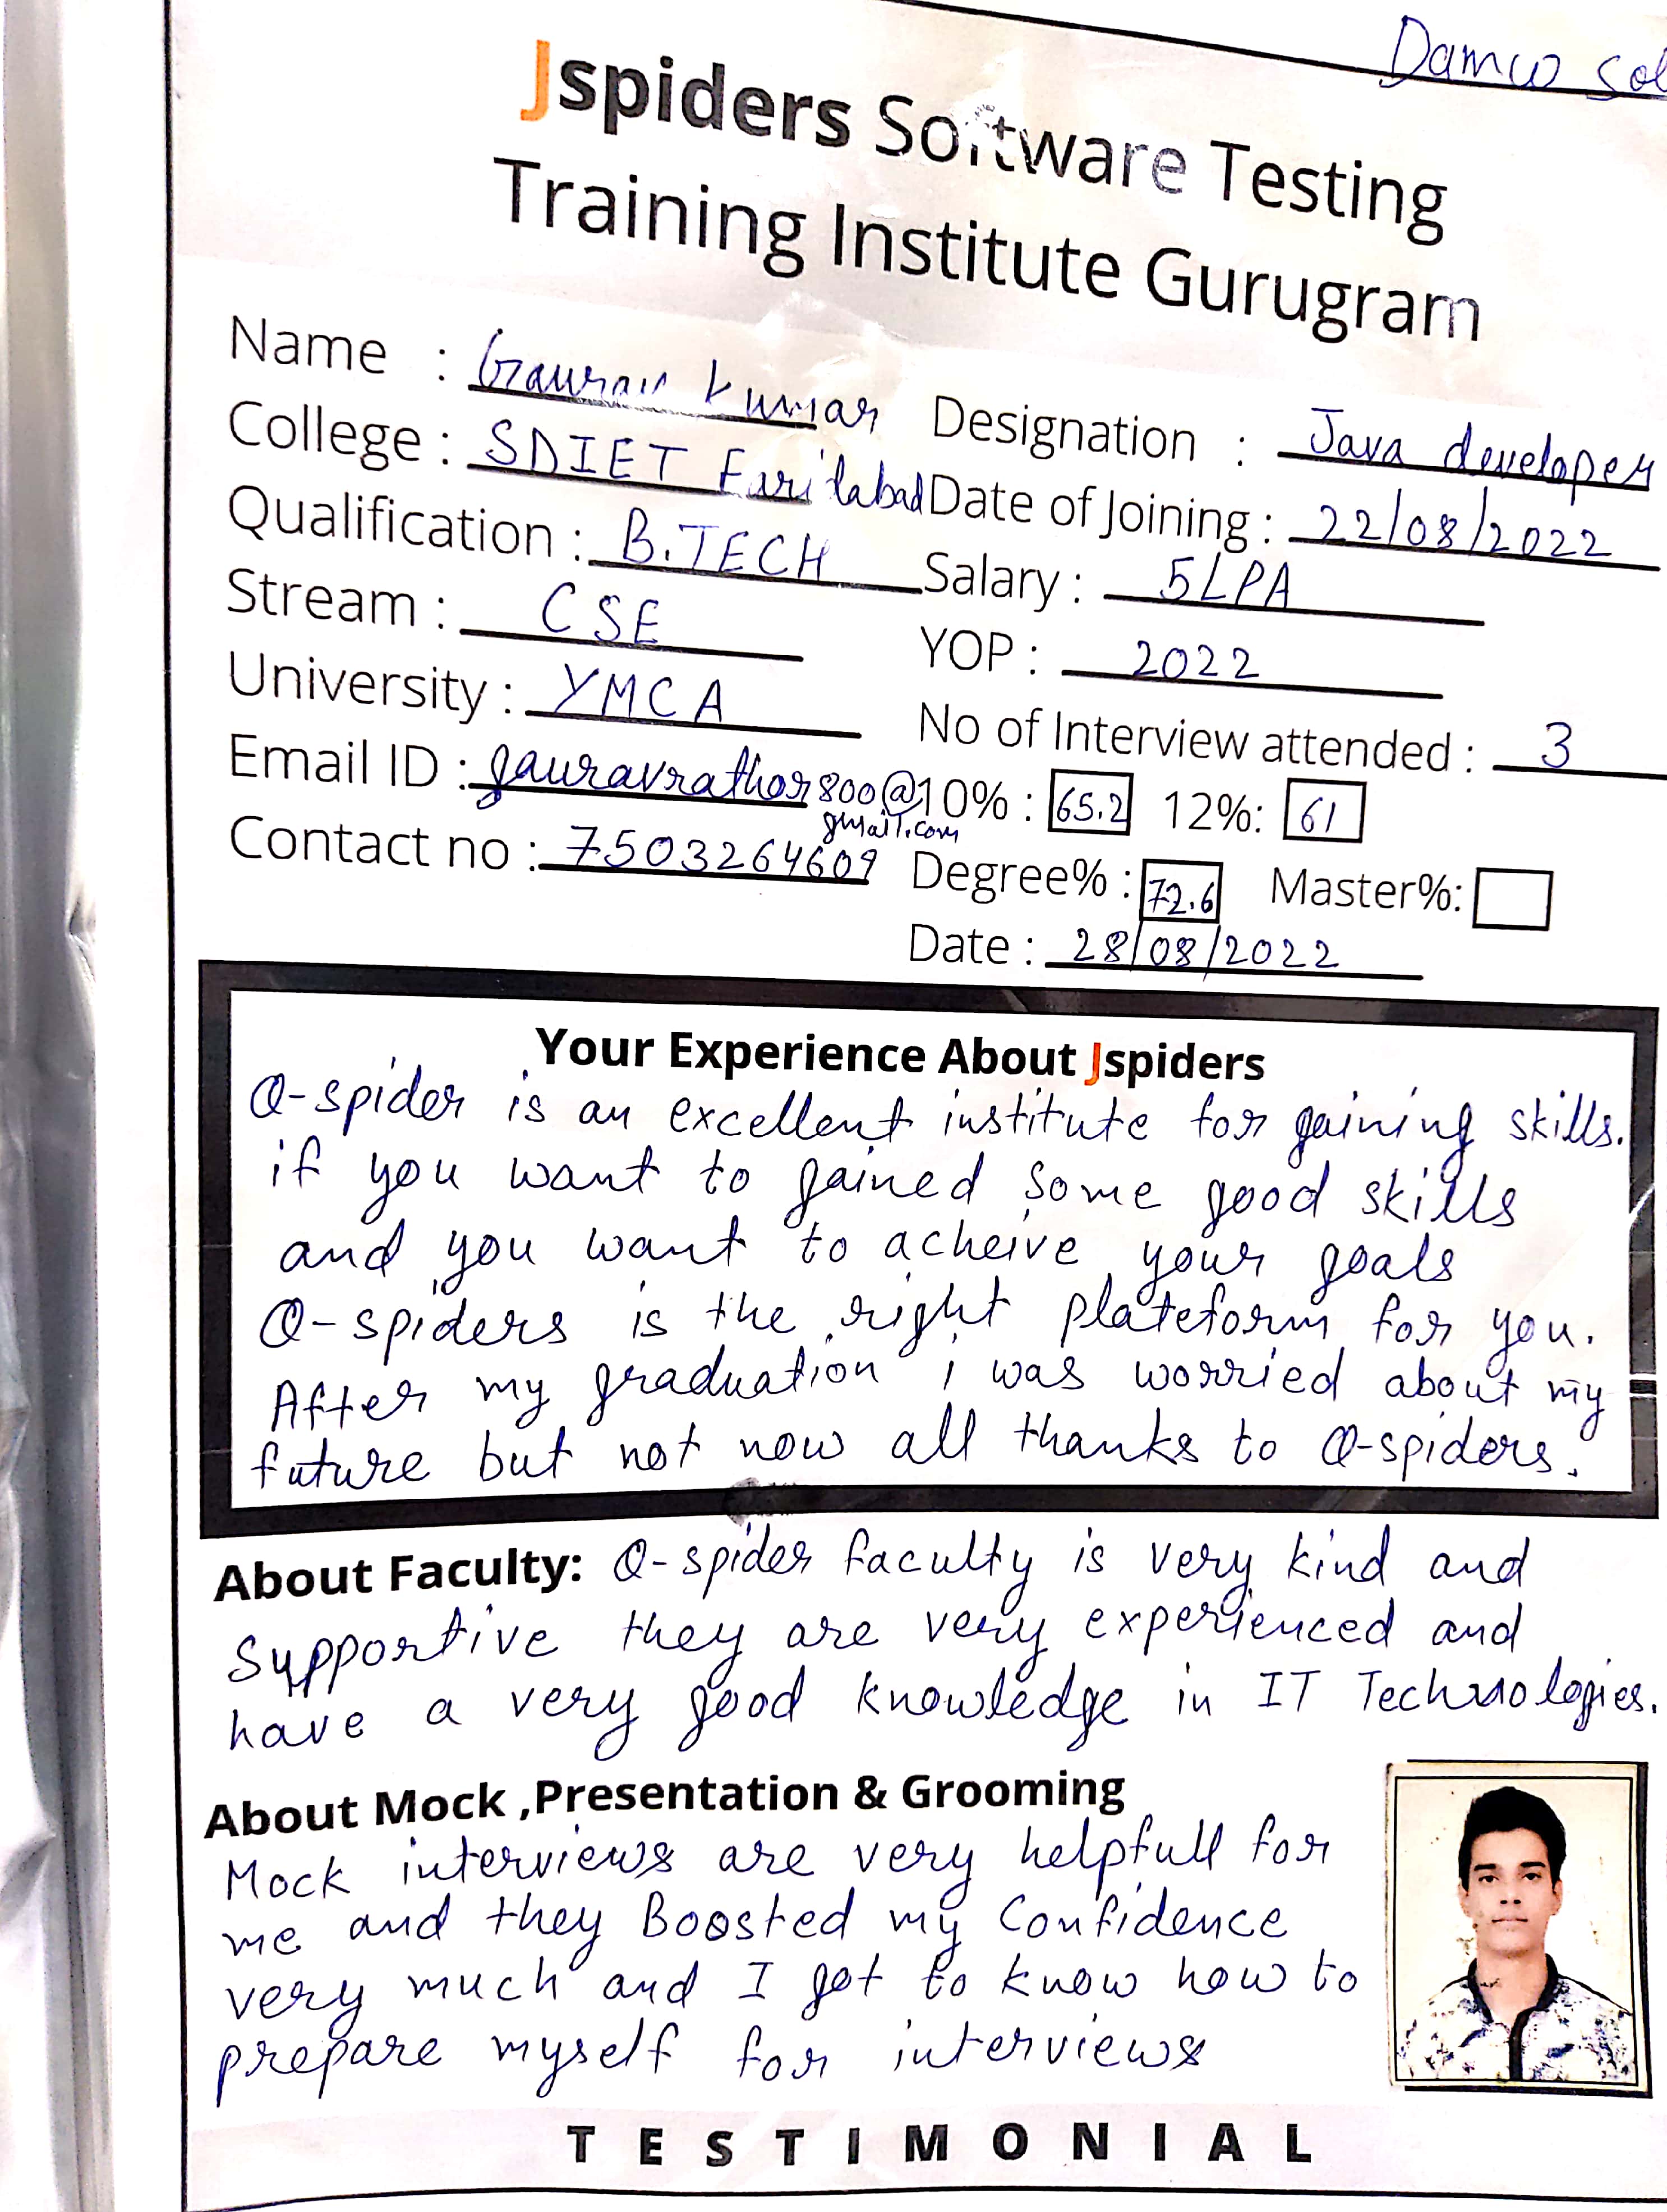 Damco Sol
Jspiders Software Testing
Training Institute Gurugram
Name : Gaurav Kumar
Designation : Java developer
College : SDIET Faridabad
Date of Joining : 22/08/2022
Qualification : B.TECH
Salary : 5LPA
Stream : CSE
YOP : 2022
University : YMCA
No of Interview attended : 3
Email ID : gauravrathor800@
gmail.com
10% : 65.2 12%: 61
Contact no : 7503264609
Degree% : 72.6 Master%:
Date : 28/08/2022
Your Experience About Jspiders
Q-spider is an excellent institute for gaining skills.
if you want to gained some good skills
and you want to acheive your goals
Q-spiders is the right plateform for you.
After my graduation i was worried about my
future but not now all thanks to Q-spiders.
About Faculty: Q-spider faculty is very kind and
supportive they are very experienced and
have a very good knowledge in IT Technologies.
About Mock ,Presentation & Grooming
Mock interviews are very helpfull for
me and they Boosted my Confidence
very much and I got to know how to
prepare myself for interviews
TESTIMONIAL